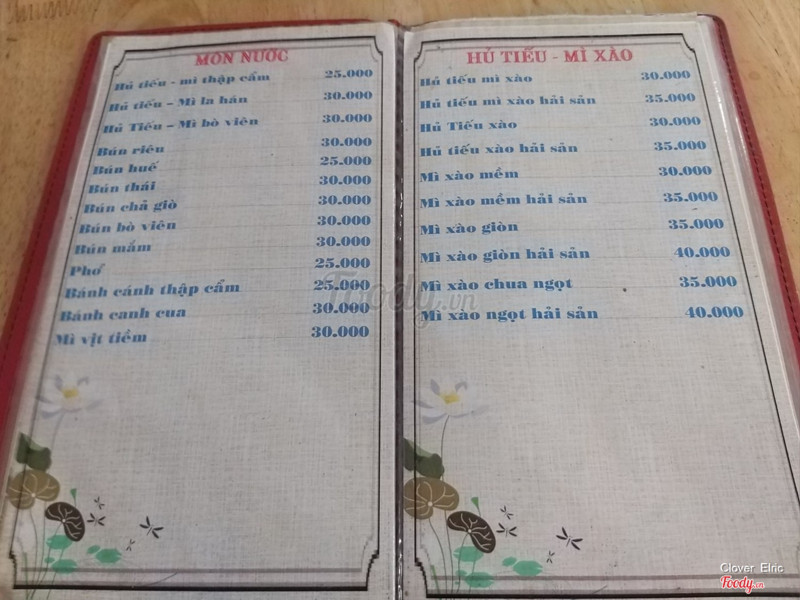 MÓN NƯỚC
Hủ tiếu - mì thập cẩm 25.000
Hủ tiếu – Mì la hán 30.000
Hủ Tiếu – Mì bò viên 30.000
Bún riêu 30.000
Bún huế 25.000
Bún thái 30.000
Bún chả giò 30.000
Bún bò viên 30.000
Bún mắm 30.000
Phở 25.000
Bánh cánh thập cẩm 25.000
Bánh canh cua 30.000
Mì vịt tiềm 30.000
HỦ TIẾU - MÌ XÀO
Hủ tiếu mì xào 30.000
Hủ tiếu mì xào hải sản 35.000
Hủ Tiếu xào 30.000
Hủ tiếu xào hải sản 35.000
Mì xào mềm 30.000
Mì xào mềm hải sản 35.000
Mì xào giòn 35.000
Mì xào giòn hải sản 40.000
Mì xào chua ngọt 35.000
Mì xào ngọt hải sản 40.000
Foody.vn
Clover Elric
Foody.vn